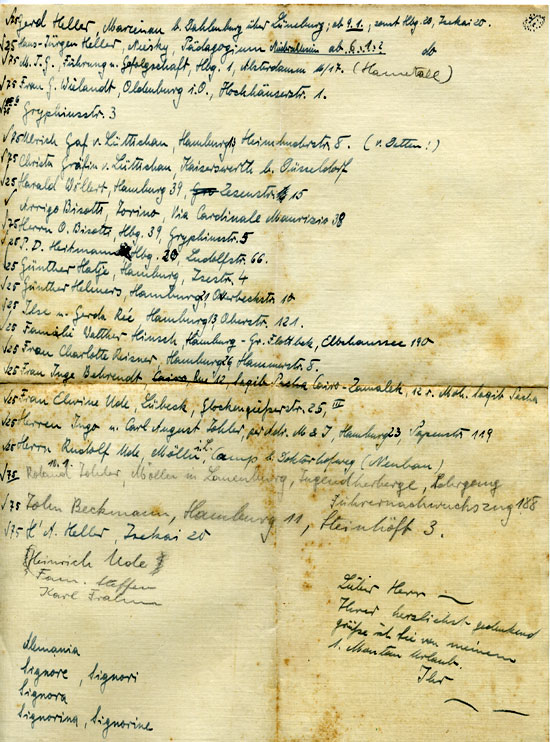 Gerd Heller, b. Dahlenburg über Lüneburg; ab 6.1., sonst Hbg. 20, Isekai 20.
√25 Hans-Jürgen Heller, Niesky, Pädagogium ab 6.1.? ab
√75 N.S.G. Führung u. Gefolgschaft, Hbg. 1, Alsterdamm 16/17. (Hametall)
√75 Frau G. Wielandt, Oldenburg i.O., Hochhäuserstr. 1.
Gryphiusstr. 3
√75 Ulrich Graf v. Lüttichau, Hamburg 13, 8. (v. Detten!)
√75 Christa Gräfin v. Lüttichau, Kaiserswerth b. Düsseldorf
√25 Harald Wöllert, Hamburg 39 Zesenstr. 15
√ Arrigo Bisotti, Torino, Via Cardinale Maurizio 38
√75 Herrn O. Bisotti, Hbg. 39, Gryphiusstr. 5
√25 P. D. Hbg. 20 Ludolfstr. 66.
√25 Günther Hatje, Hamburg, Isestr. 4
√25 Günther Helmers, Hamburg 21, Overbeckstr. 10
√25 Ilse u. Gerda Rée Hamburg 13 Oberstr. 121.
√25 Familie Walther Hinsch Hamburg - Gr. Flottbek, Elbchaussee 190
√25 Frau Charlotte Reisner, Hamburg 26 Hammerstr. 8.
√25 Frau Inge Behrendt, Cairo-Zamalek, 12 r. Moh. legib Pacha
√25 Frau Ude, Lübeck, Glockengießerstr. 25, III
√25 Herren Ingo u. Carl August Tohler, per Adr. M & J, Hamburg 23, Papenstr. 119
√25 Herrn Rudolf Ude, Mölln i.L., Camp b. Doktorhofweg (Neubau)
√75 Roland Tohler, Mölln in Lauenburg, Jugendherberge, Lehrgang
Führernachwuchszug 188
√75 John Beckmann, Hamburg 11, Steinhöft 3.
√75 H' A. Heller, Isekai 20
Heinrich Ude
Fam. Steffen
Karl Frahm
Lieber Herr —
Ihrer herzlichst gedenkend
grüße ich Sie von meinem
1. Urlaub.
Ihr
— —
Alemania
Signore, Signori
Signora
Signorina, Signorine